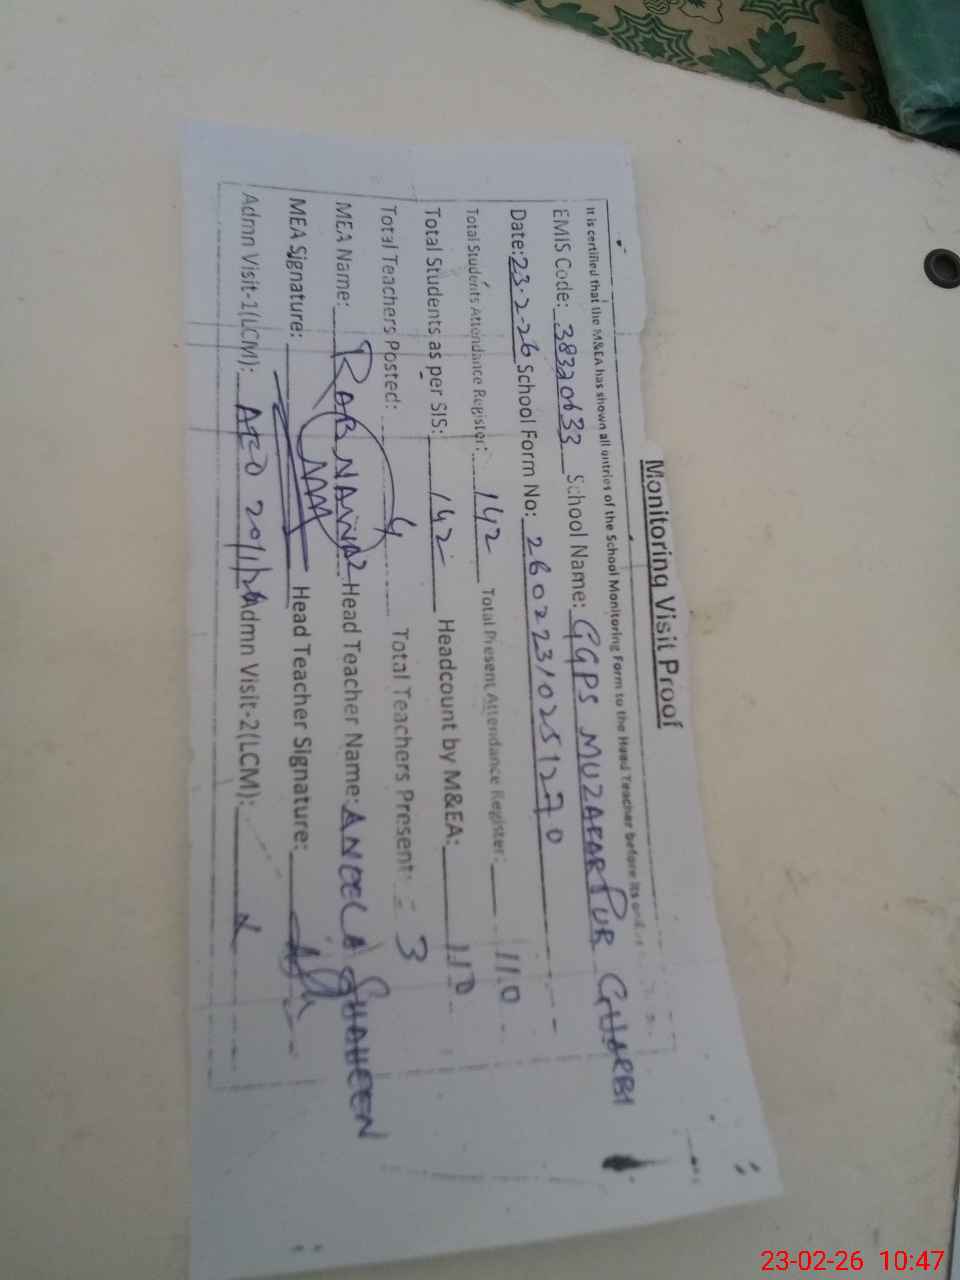 Monitoring Visit Proof
It is certified that the M&EA has shown all entries of the School Monitoring Form to the Head Teacher before its
EMIS Code: 38320633 School Name: GGPS MUZAFARPUR GHARBI
Date: 23-2-26 School Form No: 26022310251270
Total Students Attendance Register: 142 Total Present Attendance Register: 110
Total Students as per SIS: 142 Headcount by M&EA: 110
Total Teachers Posted: 4 Total Teachers Present: 3
MEA Name: RAB NAWAZ Head Teacher Name: ANEELA SHAHEEN
MEA Signature: Head Teacher Signature:
Admn Visit-1(LCM): AEO 20/1/26 Admn Visit-2(LCM):
23-02-26 10:47